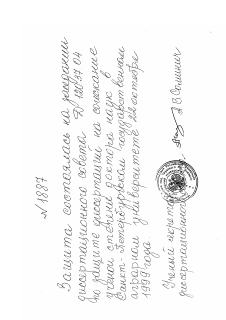 N 1887
Защита состоялась на заседании
диссертационного совета Д 120.37.04
по защите диссертаций на соискание
ученой степени доктора наук в
Санкт-Петербургском государственном
аграрном университете 22 октября
1999 года.
Ученый секретарь
диссертационного